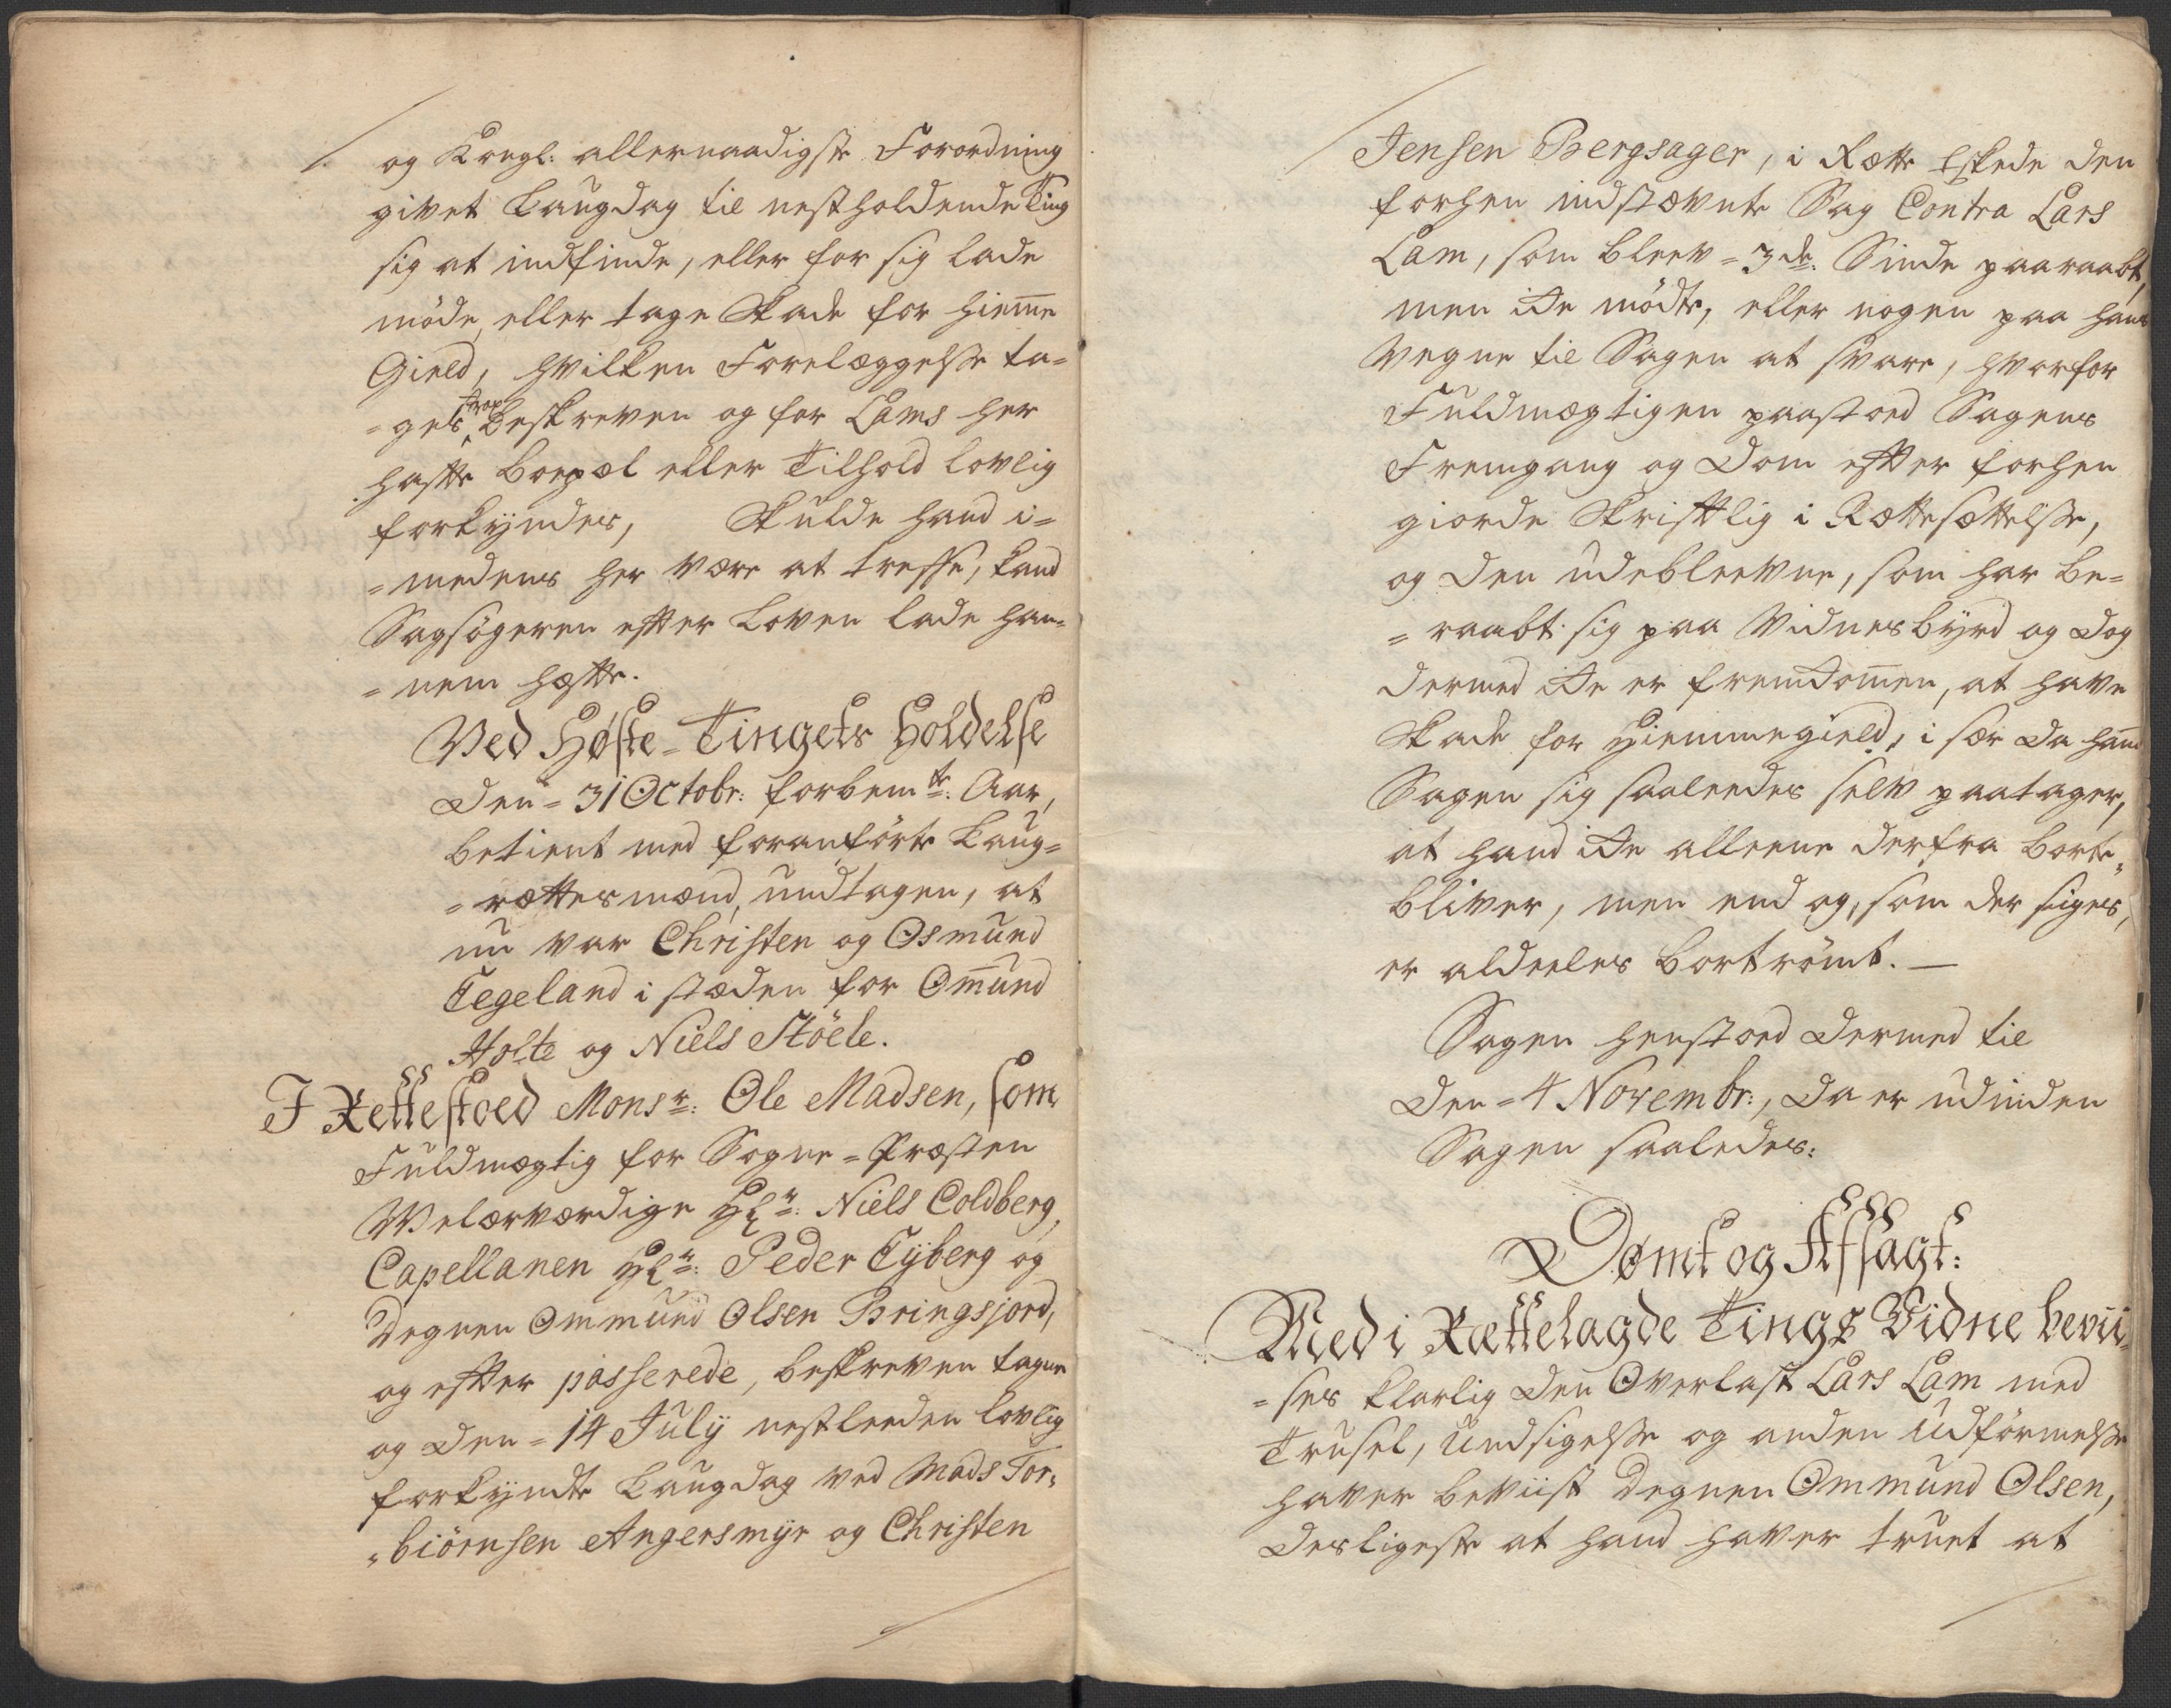 og Kongl: allernaadigste Forordning
givet Laugdag til nestholdende Ting
sig at indfinde, eller for sig lade
möde, eller tage Skade for hiem̅e
Gield, hvilken Forelæggelsse ta=
=ges beskreven og for Lams her
hafte Boepæl eller Tilhold lovlig
forkÿndes, Skulde hand i=
=medens her være at treffe, kand
Sagsögeren efter Loven lade han=
=nem hæfte.
Ved Høste=Tingets Holdelse
den=31 Octobr: forbemte: Aar,
betient med foranförte Laug=
=rættesmænd, undtagen, at
nu var Christen og Osmund
Tegeland i stæden for Om̅und
Holte og Niels Stöele.
I Rettestoed Monsr: Ole Madsen, som
Fuldmægtig for Sogne=Præsten
Velærværdige Hr: Niels Coldberg,
Capellanen Hr: Peder Tÿberg og
Degnen Ommund Olsen Bringsjord,
og efter passerede, beskreven tagne
og den=14 Julÿ nestleeden lovlig
forkÿndte Laugdag ved Mads Tor=
=biörnsen Angersmÿr og Christen
Jensen Bergsager, i Rætte Eskede den
forhen indstævnte Sag Contra Lars
Lam, som bleev=3de: Sinde paaraabt,
men icke mödte, eller nogen paa hans
Vegne til Sagen at svare, hvorfor
Fuldmægtigen paastoed Sagens
Fremgang og Dom efter forhen
giorde Skriftlig i Rættesættelsse,
og den udebleevne, som har be=
=raabt sig paa Vidnesbÿrd og dog
dermed icke er fremkom̅en, at have
Skade for Hiemmegield, i sær da han̅d
Sagen sig saaleedes selv paatager,
at hand icke alleene derfra borte=
bliver, men end og, som der siges,
er aldeeles bortrömt. —
Sagen henstoed dermed til
den=4 Novembr:, da er udinden
Sagen saaledes:
Dømt og Afsagt:
Med i Rættelagde Tings Vidne bevii=
=ses klarlig den Overlast Lars Lam med
Trusel, Undsigelsse og anden Udförmelsse
haver beviist Degnen Ommund Olsen,
desligeste at hand haver truet at